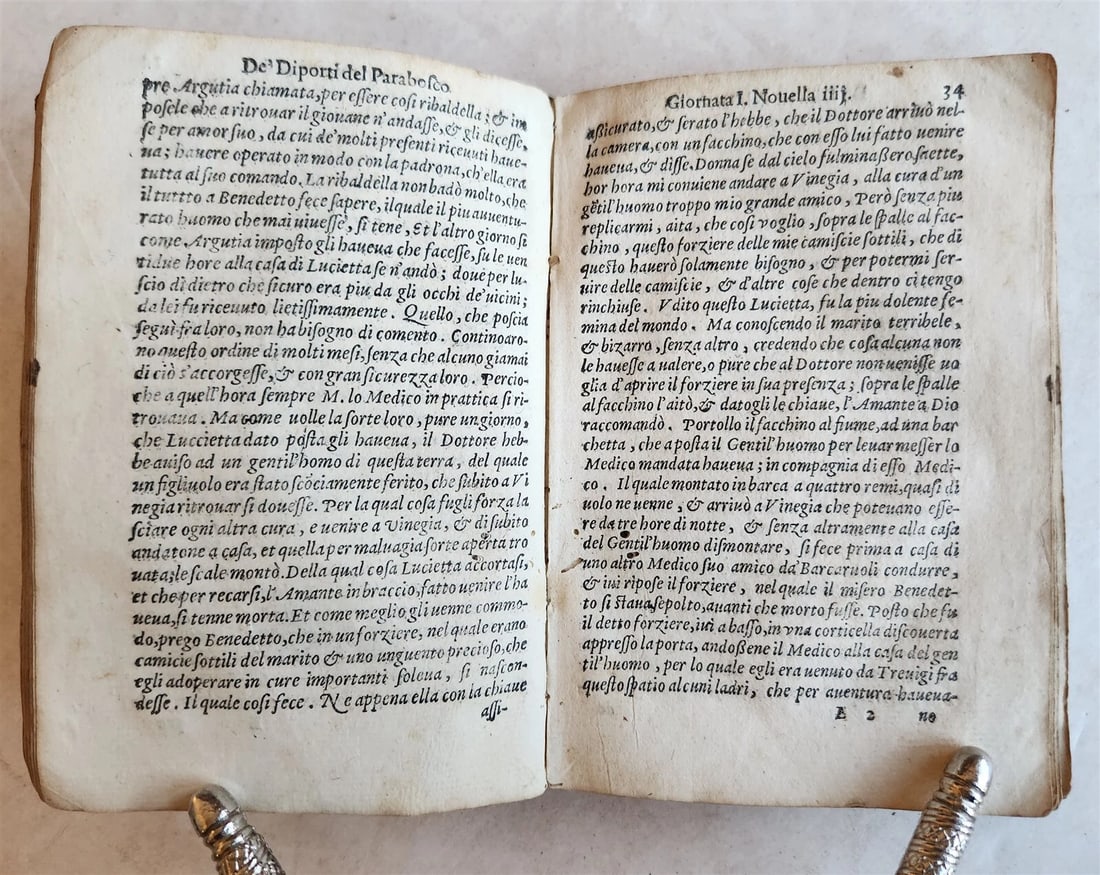 De' Diporti del Parabosco
pre Argutia chiamata, per essere cosi ribaldella; & im
posele che a ritrouar il giouane n'andasse, & gli dicesse,
se per amor suo, da cui de' molti presenti riceuuti haue-
ua; hauere operato in modo con la padrona, ch'ella era
tutta al suo comando. La ribaldella non badò molto, che
il tuttto a Benedetto fece sapere, ilquale il piu auuentu-
rato huomo che mai uiuesse, si tene, Et l'altro giorno si
come Argutia imposto gli haueua che facesse, su le uen
tidue hore alla casa di Lucietta se n'andò; doue per lu-
scio di dietro che sicuro era piu da gli occhi de' uicini;
da lei fu riceuuto lietissimamente. Quello, che poscia
seguì fra loro, non ha bisogno di comento. Continoaro-
no questo ordine di molti mesi, senza che alcuno giamai
di ciò s'accorgesse, & con gran sicurezza loro. Percio-
che a quell'hora sempre M. lo Medico in prattica si ri-
trouaua. Ma come uolle la sorte loro, pure un giorno,
che Luccietta dato posta gli haueua, il Dottore heb-
be auiso ad un gentil'homo di questa terra, del quale
un figliuolo era stato scōciamente ferito, che subito a Vi
negia ritrouar si douesse. Per la qual cosa fugli forza la
sciare ogni altra cura, e uenire a Uinegia, & di subito
andatone a casa, et quella per maluagia sorte aperta tro
uata; le scale montò. Della qual cosa Lucietta accortasi,
et che per recarsi, l'Amante in braccio, fatto uenire l'ha
ueua, si tenne morta. Et come meglio gli uenne commo-
do, prego Benedetto, che in un forziere, nel quale erano
camicie sottili del marito & uno unguento precioso, che
egli adoperare in cure importanti soleua, si nascon-
desse. Il quale cosi fece. Ne appena ella con la chiaue
assi-
Giornata I. Nouella iiij. 34
assicurato, & serato l'hebbe, che il Dottore arriuò nel-
la camera, con un facchino, che con esso lui fatto uenire
haueua, & disse. Donna se dal cielo fulminassero saette,
hor hora mi conuiene andare a Vinegia, alla cura d'un
gētil'huomo troppo mio grande amico, Però senza piu
replicarmi, aita, che cosi voglio, sopra le spalle al fac-
chino, questo forziere delle mie camiscie sottili, che di
questo hauerò solamente bisogno, & per potermi ser-
uire delle camiscie, & d'altre cose che dentro ci tengo
rinchiuse. Vdito questo Lucietta, fu la piu dolente fe-
mina del mondo. Ma conoscendo il marito terribele,
& bizarro, senza altro, credendo che cosa alcuna non
le hauesse a ualere, o pure che al Dottore non uenisse uo
glia d'aprire il forziere in sua presenza; sopra le spalle
al facchino l'aitò, & datogli le chiaue, l'Amante a Dio
raccomandò. Portollo il facchino al fiume, ad una bar
chetta, che a posta il Gentil'huomo per leuar messer lo
Medico mandata haueua; in compagnia di esso Medi-
co. Il quale montato in barca a quattro remi, quasi di
uolo ne uenne, & arriuò a Vinegia che poteuano esse-
re da tre hore di notte, & senza altramente alla casa
del Gentil'huomo dismontare, si fece prima a casa di
uno altro Medico suo amico da' Barcaruoli condurre,
& iui ripose il forziere, nel quale il misero Benedet-
to si staua sepolto, auanti che morto fusse. Posto che fu
il detto forziere, iui a basso, in vna corticella discouerta
appresso la porta, andossene il Medico alla casa del gen
til'huomo, per lo quale egli era venuto da Treuigi fra
questo spatio alcuni ladri, che per auentura haueua-
E 2 no